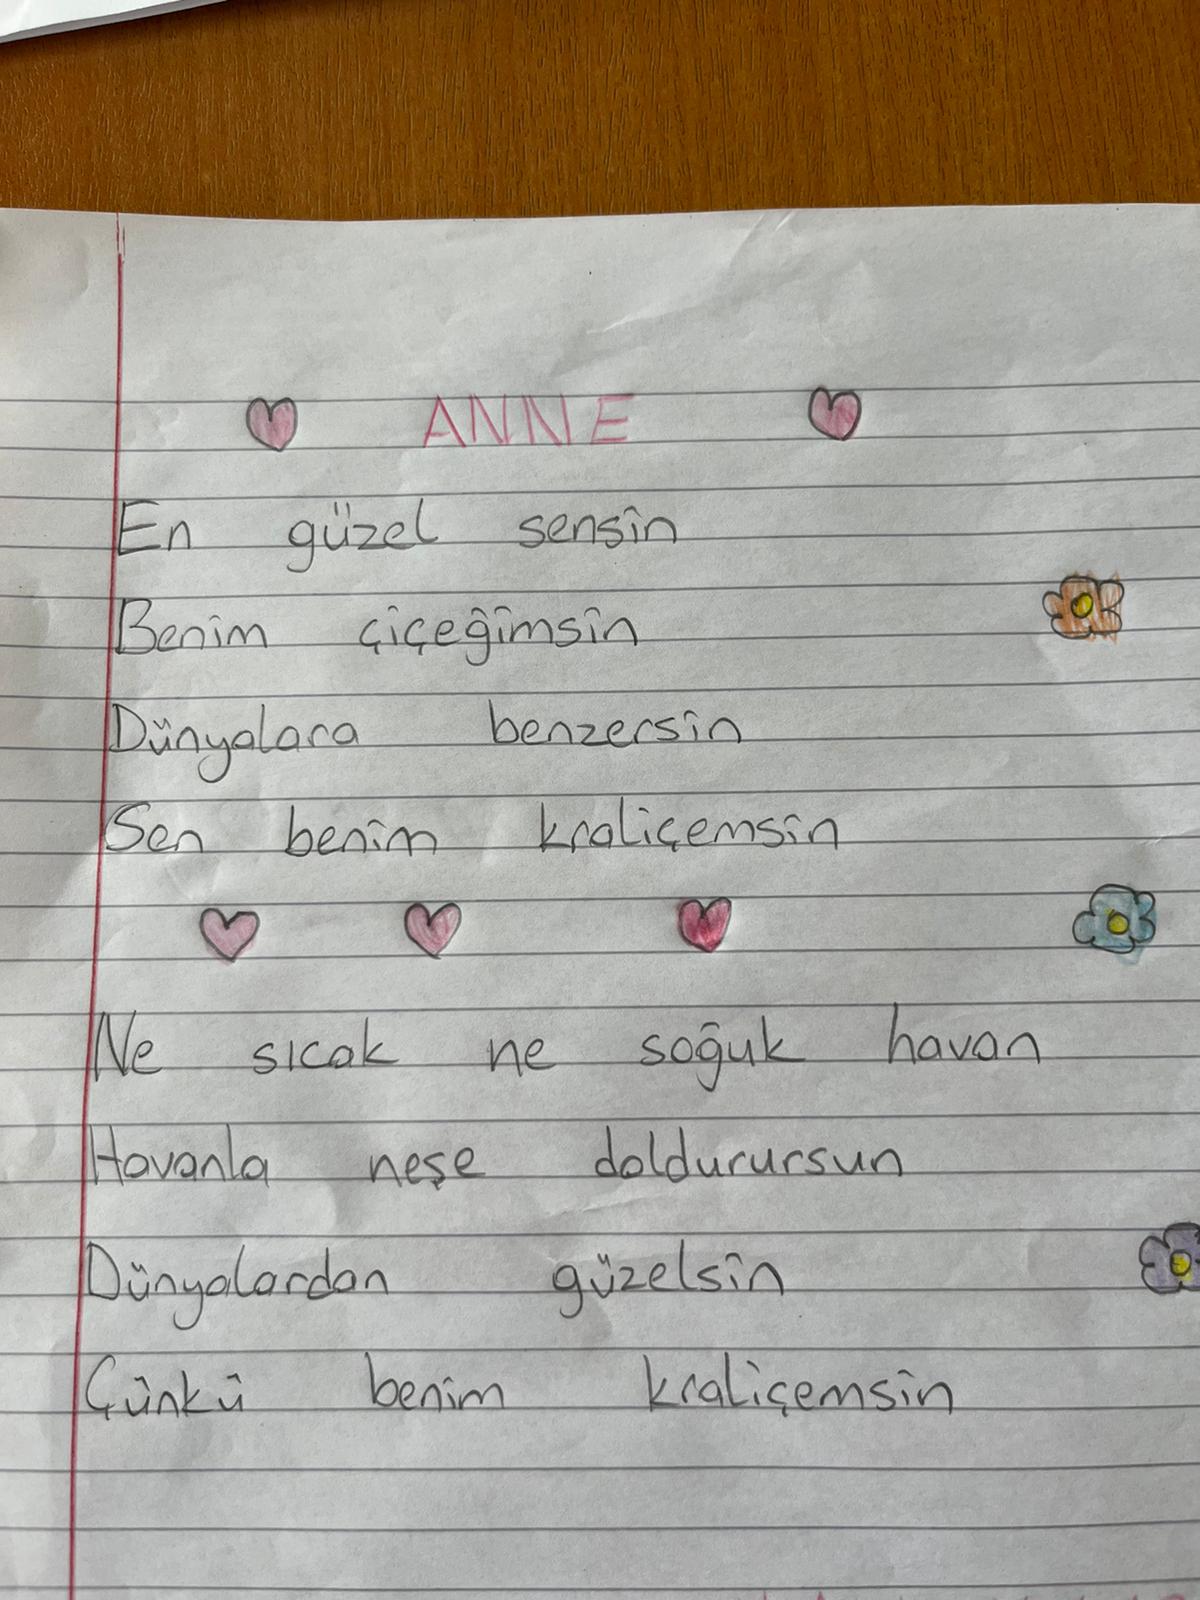 ANNE
En güzel sensin
Benim çiçeğimsin
Dünyalara benzersin
Sen benim kraliçemsin
Ne sıcak ne soğuk havan
Havanla neşe doldurursun
Dünyalardan güzelsin
Çünkü benim kraliçemsin